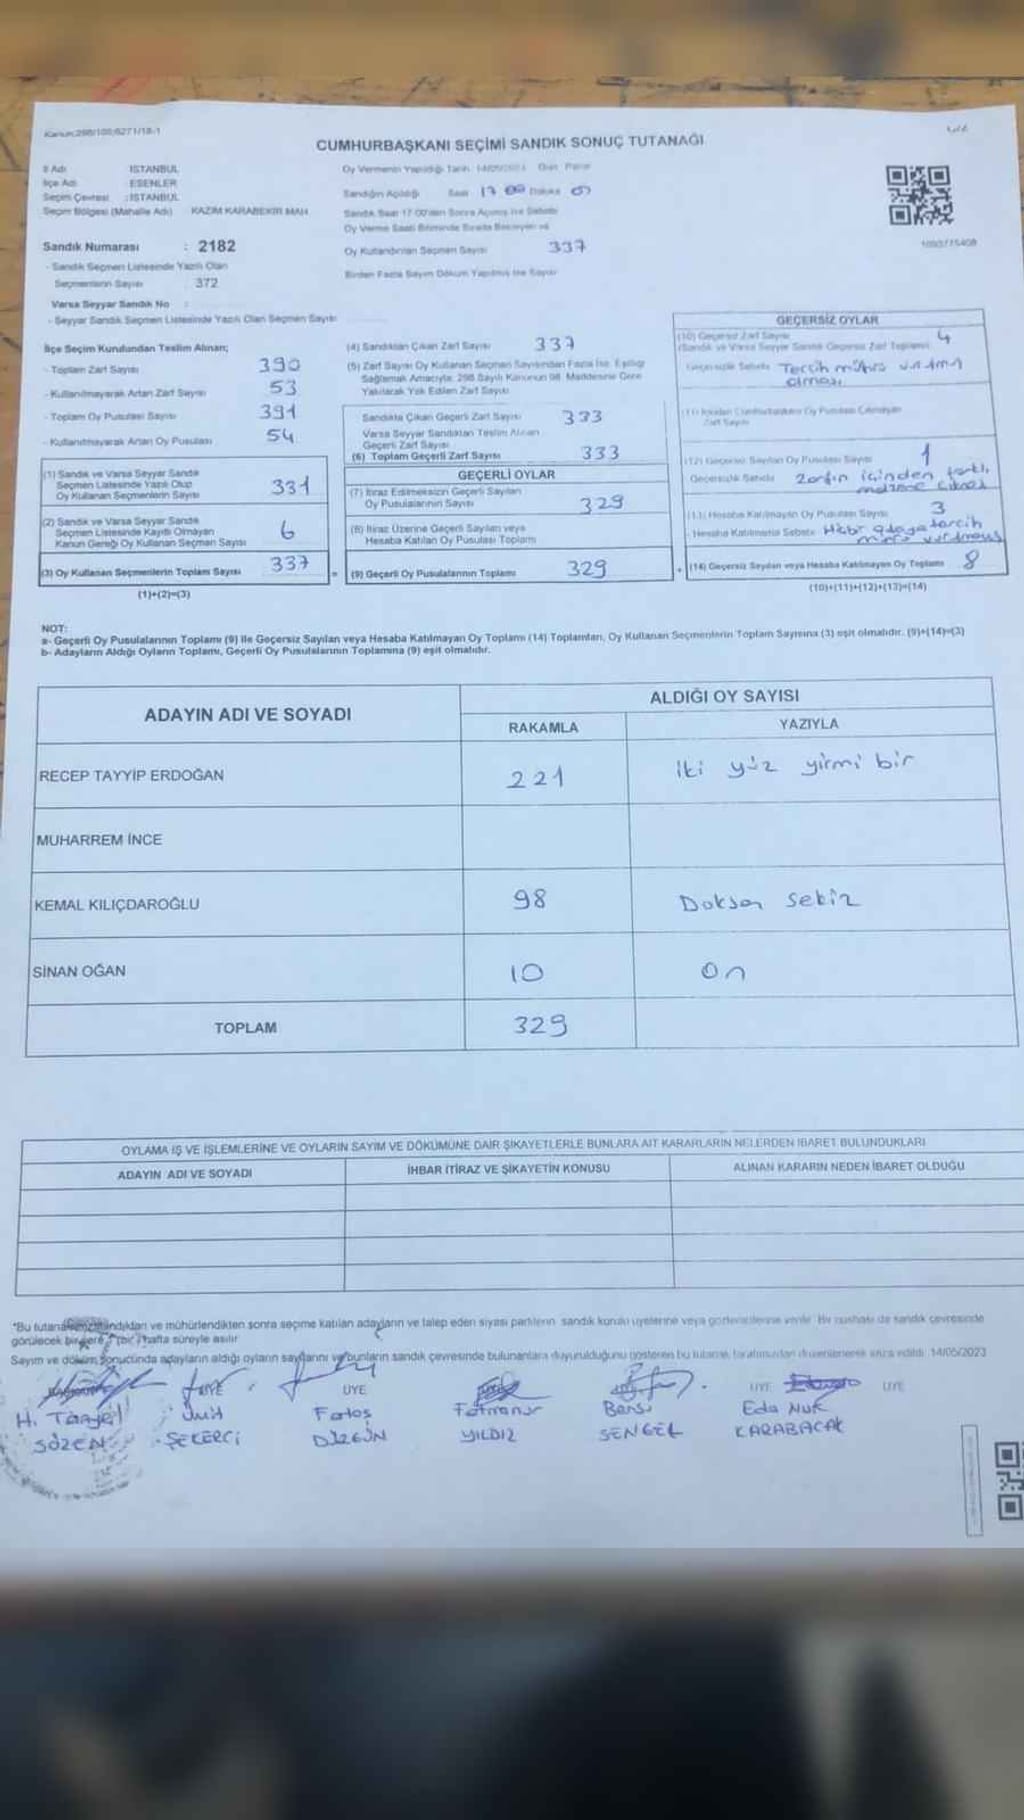 Kanun:298/105;6271/18-1
CUMHURBAŞKANI SEÇİMİ SANDIK SONUÇ TUTANAĞI
İl Adı : İSTANBUL
İlçe Adı : ESENLER
Seçim Çevresi : İSTANBUL
Seçim Bölgesi (Mahalle Adı) KAZIM KARABEKİR MAH
Sandık Numarası : 2182
- Sandık Seçmen Listesinde Yazılı Olan
Seçmenlerin Sayısı : 372
Varsa Seyyar Sandık No :
- Seyyar Sandık Seçmen Listesinde Yazılı Olan Seçmen Sayısı
Oy Vermenin Yapıldığı Tarih 14/05/2023 Gün Pazar
Sandığın Açıldığı Saat 17 00 Dakika
Sandık Saat 17:00'den Sonra Açılmış İse Sebebi
Oy Verme Saati Bitiminde Sırada Bekleyen ve
Oy Kullandırılan Seçmen Sayısı 337
Birden Fazla Sayım Döküm Yapılmış İse Sayısı
1093775408
İlçe Seçim Kurulundan Teslim Alınan;
- Toplam Zarf Sayısı 390
- Kullanılmayarak Artan Zarf Sayısı 53
- Toplam Oy Pusulası Sayısı 391
- Kullanılmayarak Artan Oy Pusulası 54
(1) Sandık ve Varsa Seyyar Sandık
Seçmen Listesinde Yazılı Olup
Oy Kullanan Seçmenlerin Sayısı 331
(2) Sandık ve Varsa Seyyar Sandık
Seçmen Listesinde Kayıtlı Olmayan
Kanun Gereği Oy Kullanan Seçmen Sayısı 6
(3) Oy Kullanan Seçmenlerin Toplam Sayısı 337
(1)+(2)=(3)
(4) Sandıktan Çıkan Zarf Sayısı 337
(5) Zarf Sayısı Oy Kullanan Seçmen Sayısından Fazla İse, Eşitliği
Sağlamak Amacıyla, 298 Sayılı Kanunun 98. Maddesine Göre
Yakılarak Yok Edilen Zarf Sayısı
Sandıkta Çıkan Geçerli Zarf Sayısı 333
Varsa Seyyar Sandıktan Teslim Alınan
Geçerli Zarf Sayısı
(6) Toplam Geçerli Zarf Sayısı 333
GEÇERLİ OYLAR
(7) İtiraz Edilmeksizin Geçerli Sayılan
Oy Pusulalarının Sayısı 329
(8) İtiraz Üzerine Geçerli Sayılan veya
Hesaba Katılan Oy Pusulası Toplamı
= (9) Geçerli Oy Pusulalarının Toplamı 329
GEÇERSİZ OYLAR
(10) Geçersiz Zarf Sayısı 4
(Sandık ve Varsa Seyyar Sandık Geçersiz Zarf Toplamı)
Geçersizlik Sebebi Tercih mührü
olması
Zarf Sayısı
(12) Geçersiz Sayılan Oy Pusulası Sayısı 1
Geçersizlik Sebebi Zarfın içinden farklı
malzeme çıkması
(13) Hesaba Katılmayan Oy Pusulası Sayısı 3
Hesaba Katılmama Sebebi Hiçbir adaya tercih
+ (14) Geçersiz Sayılan veya Hesaba Katılmayan Oy Toplamı 8
(10)+(11)+(12)+(13)=(14)
NOT:
a- Geçerli Oy Pusulalarının Toplamı (9) ile Geçersiz Sayılan veya Hesaba Katılmayan Oy Toplamı (14) Toplamları, Oy Kullanan Seçmenlerin Toplam Sayısına (3) eşit olmalıdır. (9)+(14)=(3)
b- Adayların Aldığı Oyların Toplamı, Geçerli Oy Pusulalarının Toplamına (9) eşit olmalıdır.
ADAYIN ADI VE SOYADI
ALDIĞI OY SAYISI
RAKAMLA YAZIYLA
RECEP TAYYİP ERDOĞAN 221 iki yüz yirmi bir
MUHARREM İNCE
KEMAL KILIÇDAROĞLU 98 Doksan sekiz
SİNAN OĞAN 10 On
TOPLAM 329
OYLAMA İŞ VE İŞLEMLERİNE VE OYLARIN SAYIM VE DÖKÜMÜNE DAİR ŞİKAYETLERLE BUNLARA AİT KARARLARIN NELERDEN İBARET BULUNDUKLARI
ADAYIN ADI VE SOYADI İHBAR İTİRAZ VE ŞİKAYETİN KONUSU ALINAN KARARIN NEDEN İBARET OLDUĞU
*Bu tutanak imzalandıktan ve mühürlendikten sonra seçime katılan adayların ve talep eden siyasi partilerin sandık kurulu üyelerine veya gözlemcilerine verilir. Bir nüshası da sandık çevresinde
görülecek bir yere 1 (bir) hafta süreyle asılır
Sayım ve döküm sonucunda adayların aldığı oyların sayılarını ve bunların sandık çevresinde bulunanlara duyurulduğunu gösteren bu tutanak tarafımızdan düzenlenerek imza edildi. 14/05/2023
ÜYE ÜYE ÜYE ÜYE
H. Ümit Fatoş Fatmanur Eda Nur
SÖZEN ŞEKERCİ DÜZGÜN YILDIZ SENGEL KARABACAK